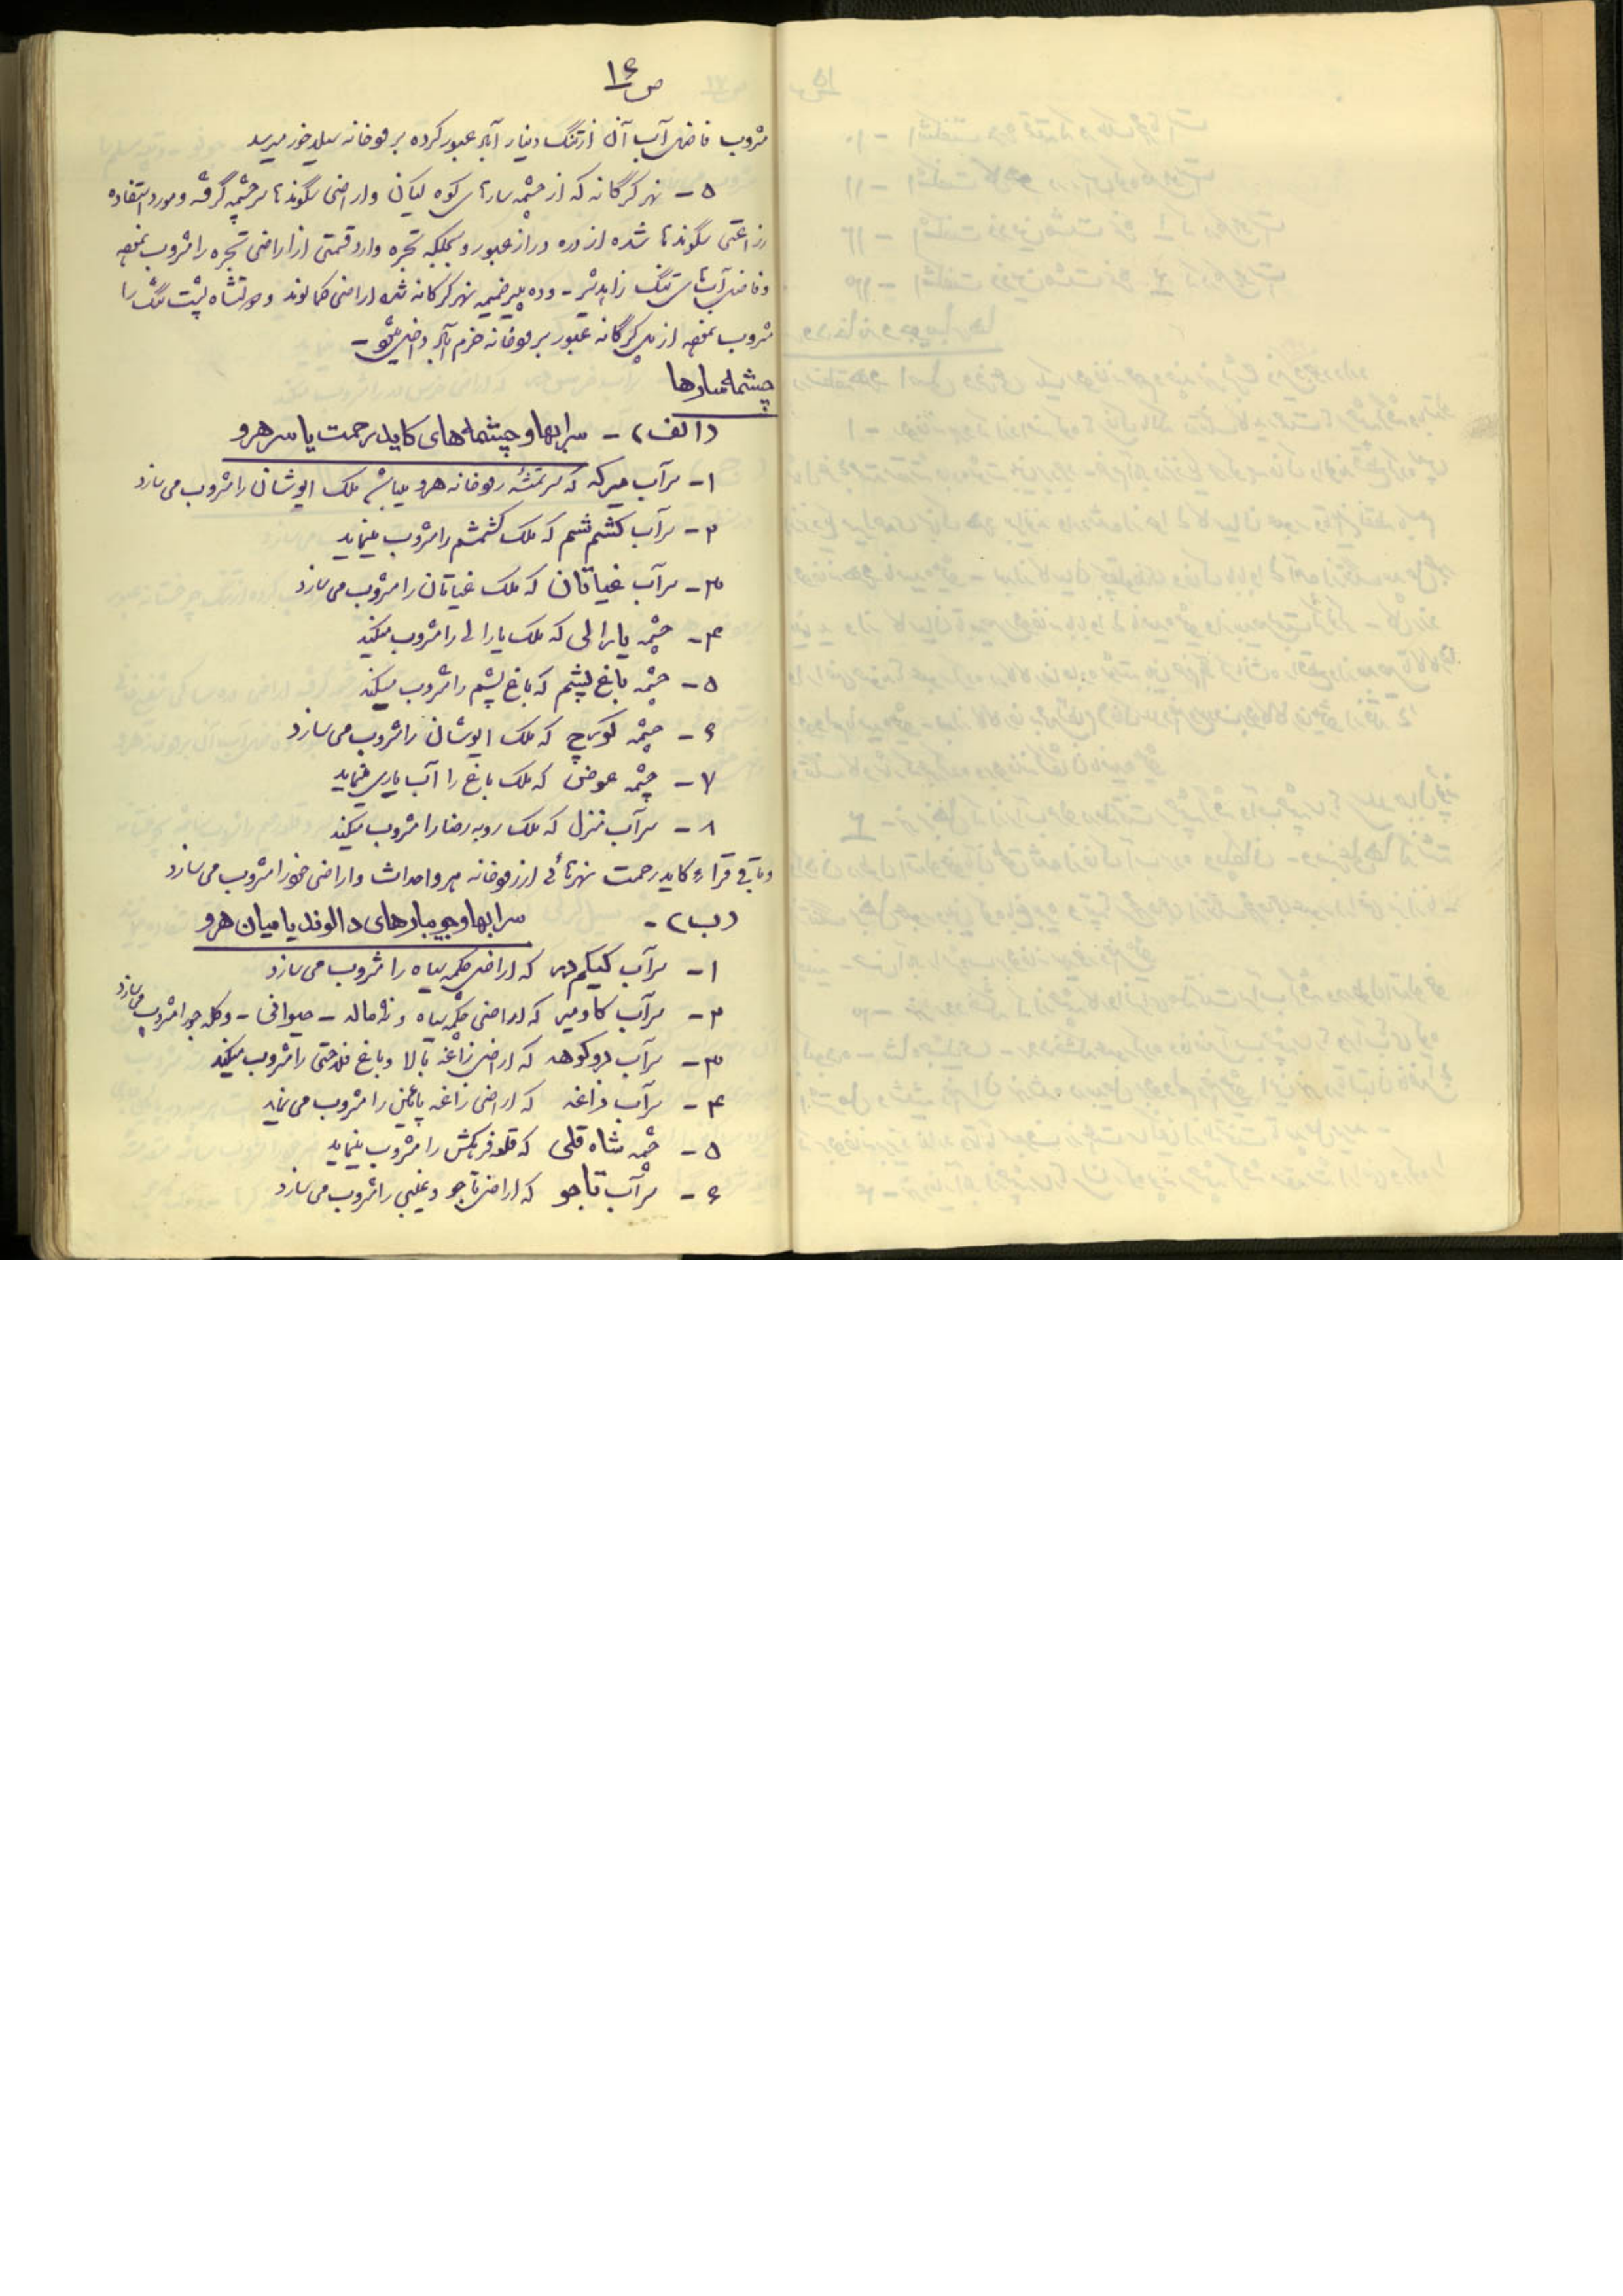 ص ۱۶
مشروب فاضل آب آن از تنگ دینار آباد عبور کرده برودخانه میرسد
۵ - نهر کرگانه که از چشمه کوه لیکان و اراضی سرچشمه گرفته و مورد استفاده
زراعتی شده از دره دراز عبور و بجلگه تجره وارد قسمتی از اراضی تجره را مشروب نموده
و فاضل تنگ زاهدشیر - و ده پیر ضمیمه نهر کرگانه شده اراضی کمالوند و پشت تنگ را
مشروب نموده از پل کرگانه عبور برودخانه خرم آباد داخل میشود -
چشمه سارها
(الف) - سرابها و چشمه های کاید رحمت یا سر هرو
۱ - سرآب میرکه که سرچشمه رودخانه هرو میباشد ملک ایوشان را مشروب می سازد
۲ - سرآب کشم شم که ملک کشمشم را مشروب مینماید
۳ - سرآب غیاثان که ملک غیاثان را مشروب می سازد
۴ - چشمه یارالی که ملک یارالی را مشروب میکند
۵ - چشمه باغ پشم که باغ پشم را مشروب میکند
۶ - چشمه که ملک ایوشان را مشروب می سازد
۷ - چشمه عوض که ملک باغ را آب یاری مینماید
۸ - سرآب منزل که ملک روبه رضا را مشروب میکند
و باقی قراء کاید رحمت نهرهائی از رودخانه هرو احداث و اراضی خود را مشروب می سازد
(ب) - سرابها و جویبارهای دالوند یا میان هرو
۱ - سرآب که اراضی چکمه سیاه را مشروب می سازد
۲ - سرآب کاومیر که اراضی چکمه سیاه و - حیوانی - و کله جو را مشروب می سازد
۳ - سرآب دوکوهه که اراضی زاغه بالا و باغ را مشروب میکند
۴ - سرآب زاغه که اراضی زاغه پائین را مشروب می نماید
۵ - چشمه شاه قلی که قلعه را مشروب مینماید
۶ - سرآب تاجو که اراضی تاجو و غیبی را مشروب می سازد